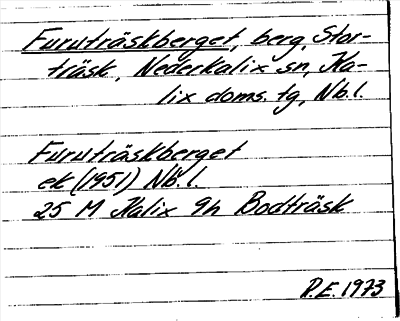 Furuträskberget, berg, Stor-
träsk, Nederkalix sn, Ka-
lix doms. tg, Nb.l.
Furuträskberget
ek (1951) Nb. l.
25 M Kalix 9h Bodträsk
R.E. 1973